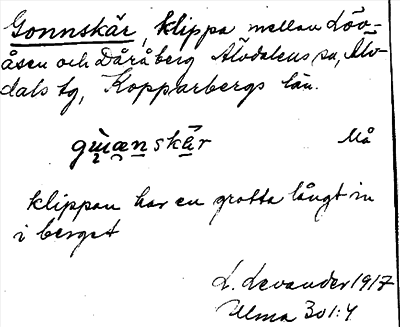 Gonnskär, klippa mellan Löv-
åsen och Dåråberg Älvdalens sn, Älv-
dals tg, Kopparbergs län.
skär Må
klippan har en grotta långt in
i berget
L. Levander 1917
Ulma 301:4